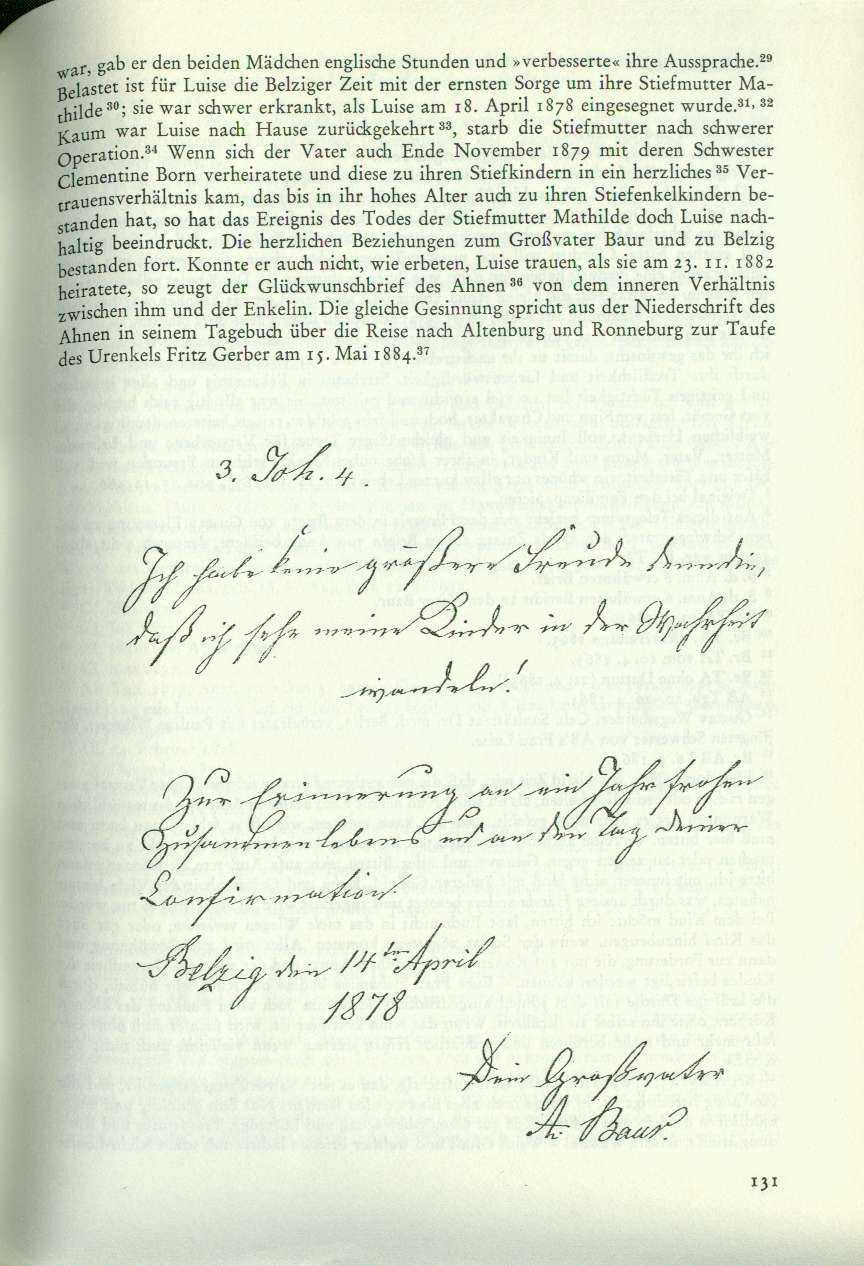 war, gab er den beiden Mädchen englische Stunden und »verbesserte« ihre Aussprache.²⁹
Belastet ist für Luise die Belziger Zeit mit der ernsten Sorge um ihre Stiefmutter Ma-
thilde ³⁰; sie war schwer erkrankt, als Luise am 18. April 1878 eingesegnet wurde.³¹, ³²
Kaum war Luise nach Hause zurückgekehrt ³³, starb die Stiefmutter nach schwerer
Operation.³⁴ Wenn sich der Vater auch Ende November 1879 mit deren Schwester
Clementine Born verheiratete und diese zu ihren Stiefkindern in ein herzliches ³⁵ Ver-
trauensverhältnis kam, das bis in ihr hohes Alter auch zu ihren Stiefenkelkindern be-
standen hat, so hat das Ereignis des Todes der Stiefmutter Mathilde doch Luise nach-
haltig beeindruckt. Die herzlichen Beziehungen zum Großvater Baur und zu Belzig
bestanden fort. Konnte er auch nicht, wie erbeten, Luise trauen, als sie am 23. 11. 1882
heiratete, so zeugt der Glückwunschbrief des Ahnen ³⁶ von dem inneren Verhältnis
zwischen ihm und der Enkelin. Die gleiche Gesinnung spricht aus der Niederschrift des
Ahnen in seinem Tagebuch über die Reise nach Altenburg und Ronneburg zur Taufe
des Urenkels Fritz Gerber am 15. Mai 1884.³⁷
3. Joh. 4.
Ich habe keine größere Freude denn die,
daß ich sehe meine Kinder in der Wahrheit
wandeln!
Zur Erinnerung an ein Jahr frohen
Zusammenlebens und an den Tag deiner
Confirmation.
Belzig den 14ten April
1878
Dein Großvater
A. Baur.
131